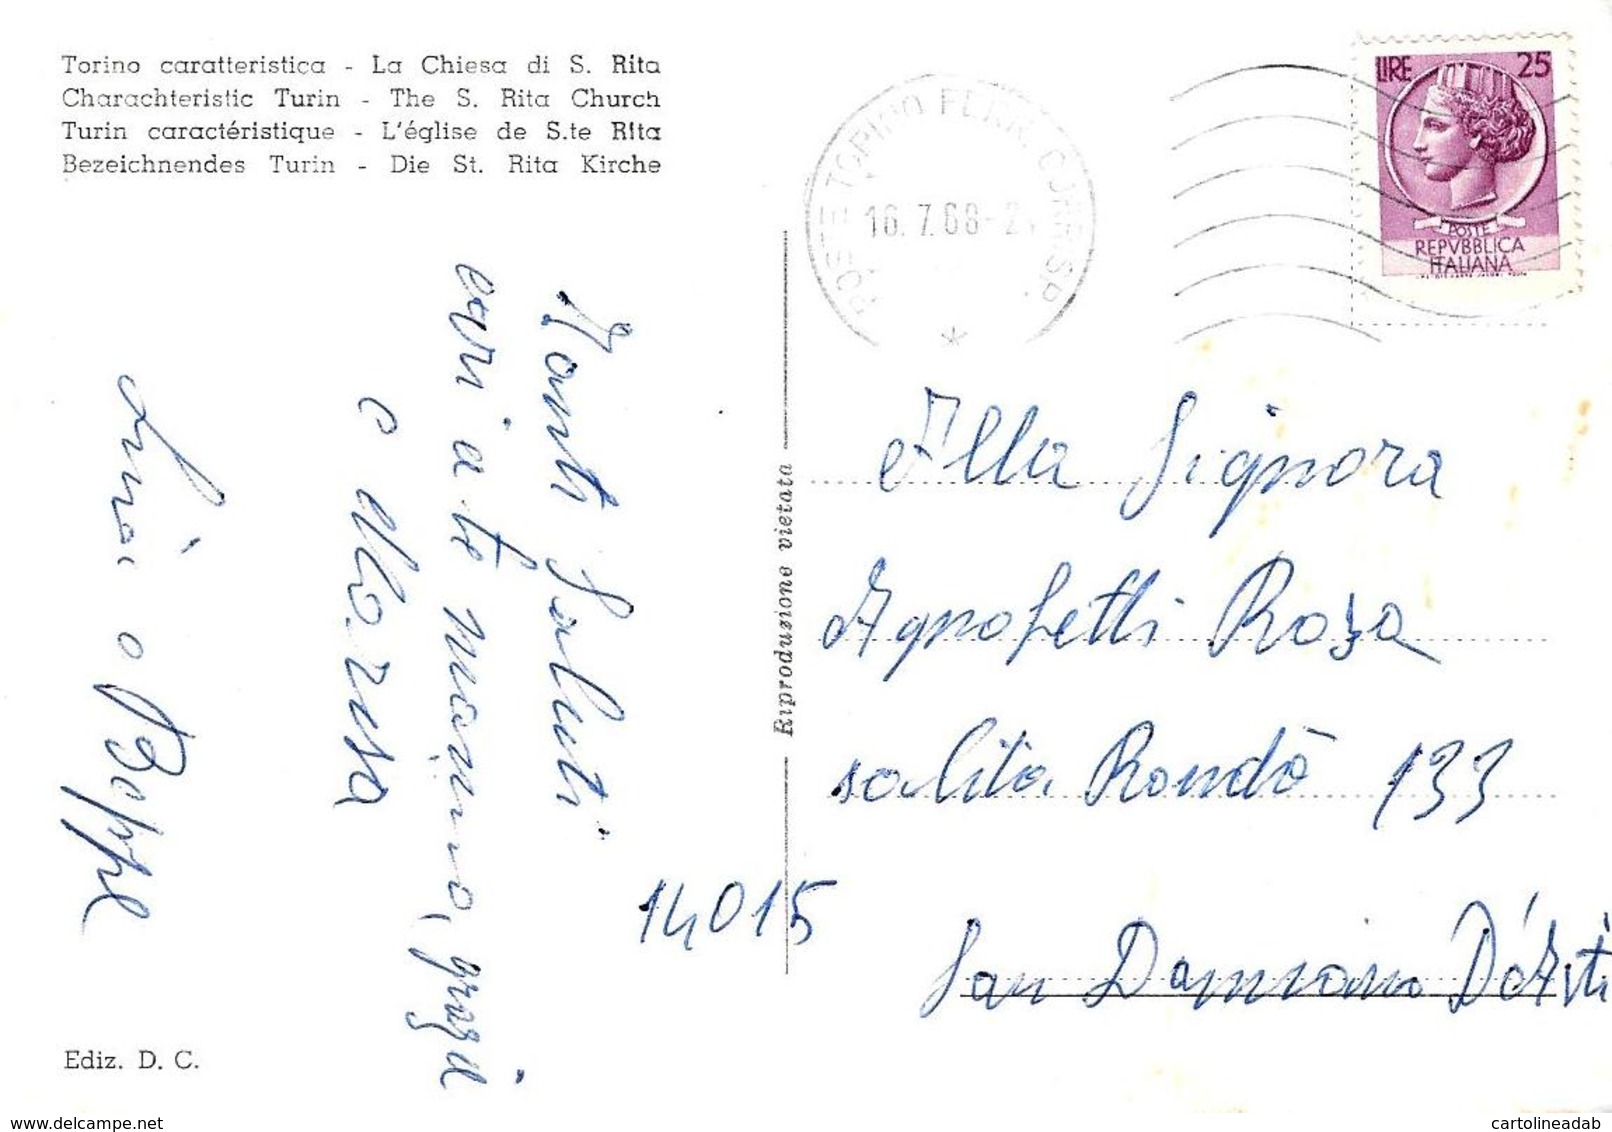 Torino caratteristica - La Chiesa di S. Rita
Charachteristic Turin - The S. Rita Church
Turin caractéristique - L'église de S.te Rita
Bezeichnendes Turin - Die St. Rita Kirche
POSTE TORINO FERR. CORRISP.
16.7.68-2
LIRE 25
POSTE
REPVBBLICA
ITALIANA
saluti
a te mamma, grazie
e
e Beppe
Riproduzione vietata
Alla Signora
Rosa
salita Rondò 133
14015
San Damiano D'Asti
Ediz. D. C.
www.delcampe.net
cartolineadab